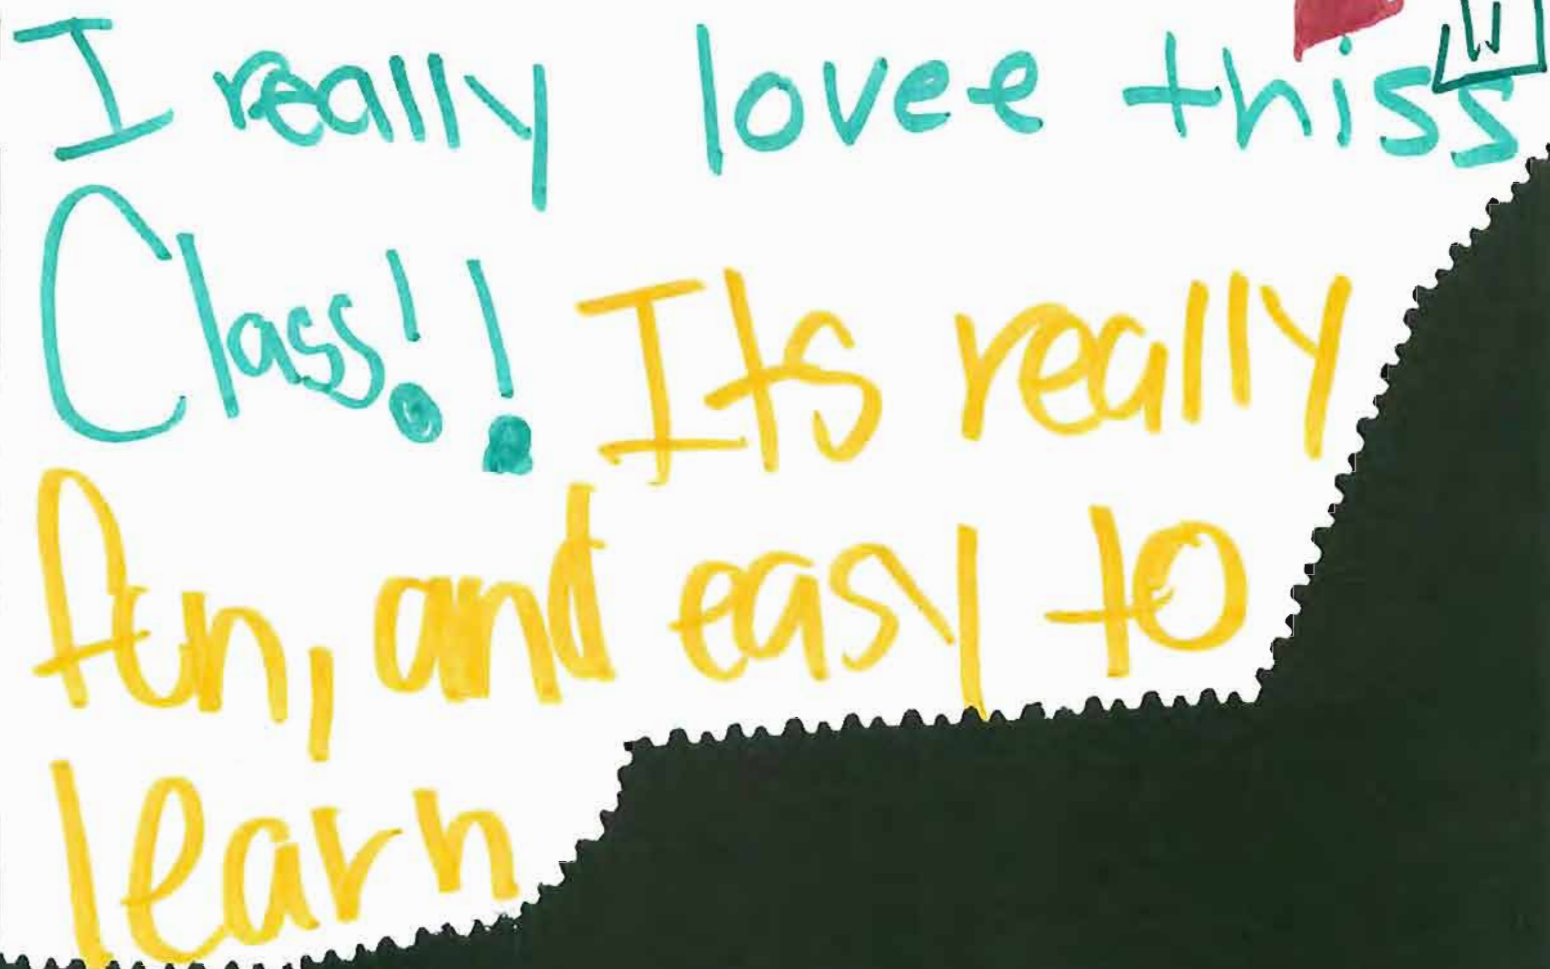 I really lovee thiss
Class!! Its really
fun, and easy to
learn